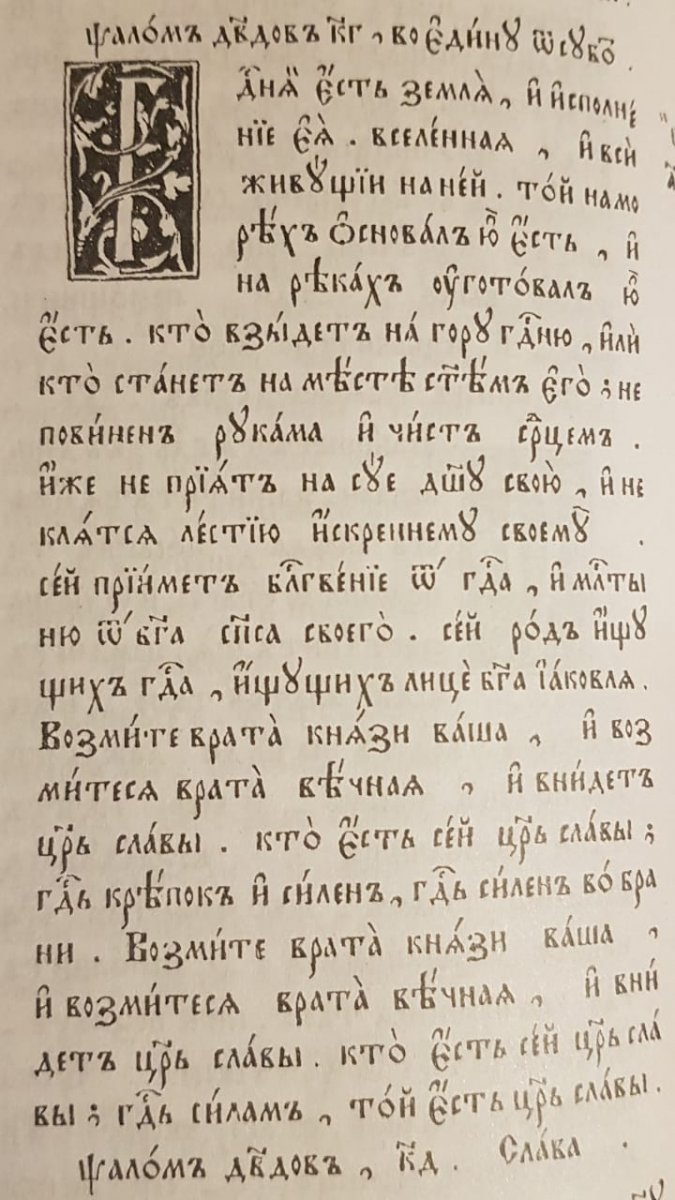 ѱало́мъ дв҃довъ к҃г , во є҆ди́нꙋ ѿ сꙋбѡ҃
Г дⷭ҇нѧ̀ є҆́сть землѧ̀ , и҆ и҆сполне́
нїе є҆ѧ̀ . вселе́ннаꙗ , и҆ всѝ
живꙋ́щїи на не́й . то́й на мо
рѣ́хъ ѻ҆снова́лъ ю҆̀ є҆́сть , и҆
на рѣка́хъ ᲂу҆гото́валъ ю҆̀
є҆́сть . кто̀ взы́детъ на́ горꙋ гдⷭ҇ню , и҆лѝ
кто̀ ста́нетъ на мѣ́стѣ ст҃ѣ́мъ є҆го̀ ; не
пови́ненъ рꙋка́ма и҆ чи́стъ срⷣцемъ .
и҆́же не прїѧ́тъ на сꙋ́е дш҃ꙋ свою̀ , и҆ не
клѧ́тсѧ ле́стїю и҆́скреннемꙋ своемꙋ̀ .
се́й прїи́метъ блгⷭ҇ве́нїе ѿ гдⷭ҇а , и҆ млⷭ҇ты
ню ѿ бг҃а сп҃са своего̀ . се́й ро́дъ и҆́щꙋ
щихъ гдⷭ҇а , и҆́щꙋщихъ лицѐ бг҃а і҆а́ковлѧ .
Возми́те врата̀ кнѧ́зи ва́ша , и҆ воз
ми́тесѧ врата̀ вѣ́чнаꙗ , и҆ вни́детъ
цр҃ь сла́вы . кто̀ є҆́сть се́й цр҃ь сла́вы ;
гдⷭ҇ь крѣ́покъ и҆ си́ленъ , гдⷭ҇ь си́ленъ во́ бра
ни . Возми́те врата̀ кнѧ́зи ва́ша ,
и҆ возми́тесѧ врата̀ вѣ́чнаꙗ , и҆ вни́
детъ цр҃ь сла́вы . кто̀ є҆́сть се́й цр҃ь сла́
вы ; гдⷭ҇ь си́ламъ , то́й є҆́сть цр҃ь сла́вы .
ѱало́мъ дв҃довъ , к҃д . Сла́ва .